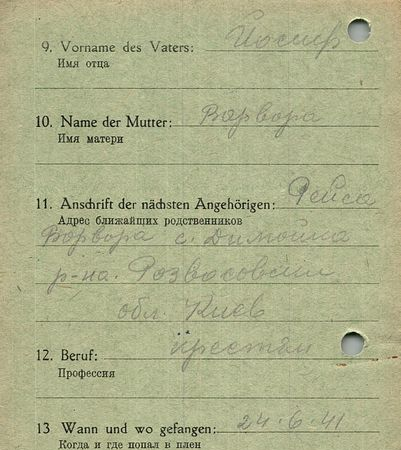 9. Vorname des Vaters: Йосиф
Имя отца
10. Name der Mutter: Ворвора
Имя матери
11. Anschrift der nächsten Angehörigen:
Адрес ближайщих родственников
Ворвора с.
р-на. Розвасовский
обл. Киев
12. Beruf: крестян
Профессия
13 Wann und wo gefangen: 24.6.41
Когда и где попал в плен